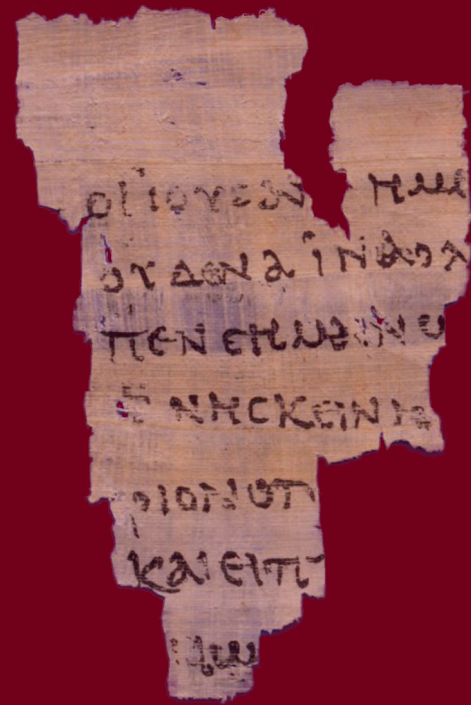 ΟΙ ΪΟΥΔΑΙ ΗΜΙ
ΟΥΔΕΝΑ ΪΝΑ Ο Λ
ΠΕΝ ϹΗΜΑΙΝΩ
ΘΝΗϹΚΕΙΝ ΙϹ
ΡΙΟΝ Ο Π
ΚΑΙ ΕΙΠ
ΑΙΩ